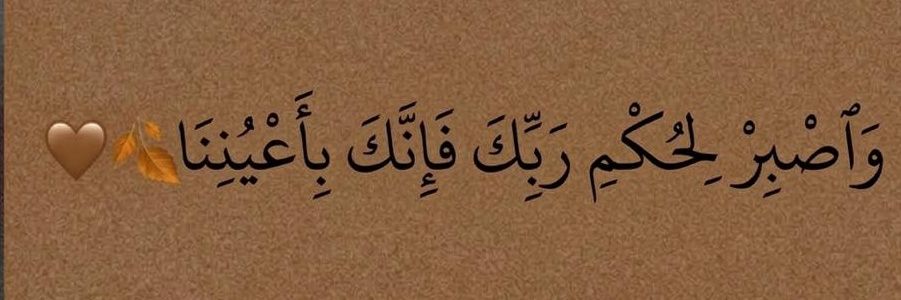 وَٱصْبِرْ لِحُكْمِ رَبِّكَ فَإِنَّكَ بِأَعْيُنِنَا🍂🤎